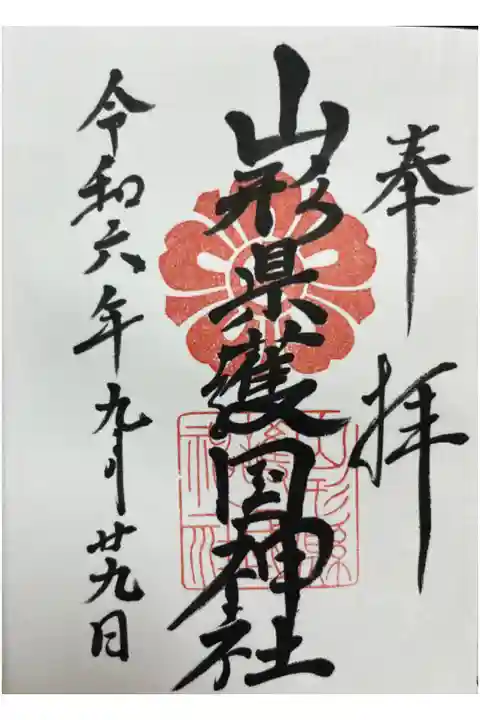 奉拝
山形県護国神社
令和六年九月廿九日